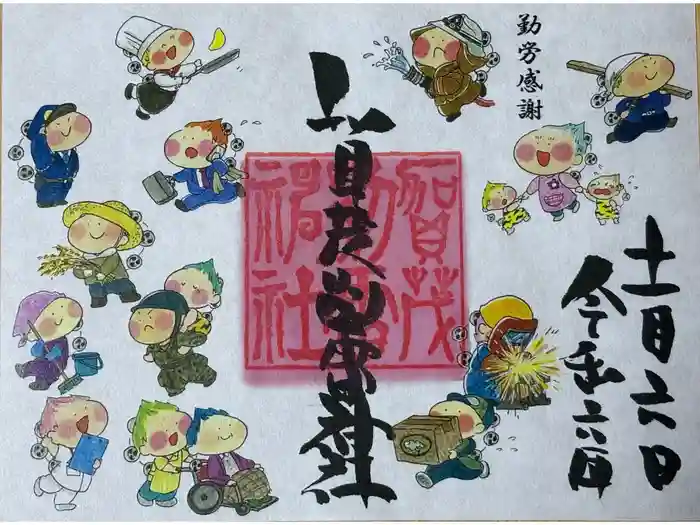 勤労感謝
十一月六日
令和六年
賀茂別雷神社
賀茂
別雷
神社